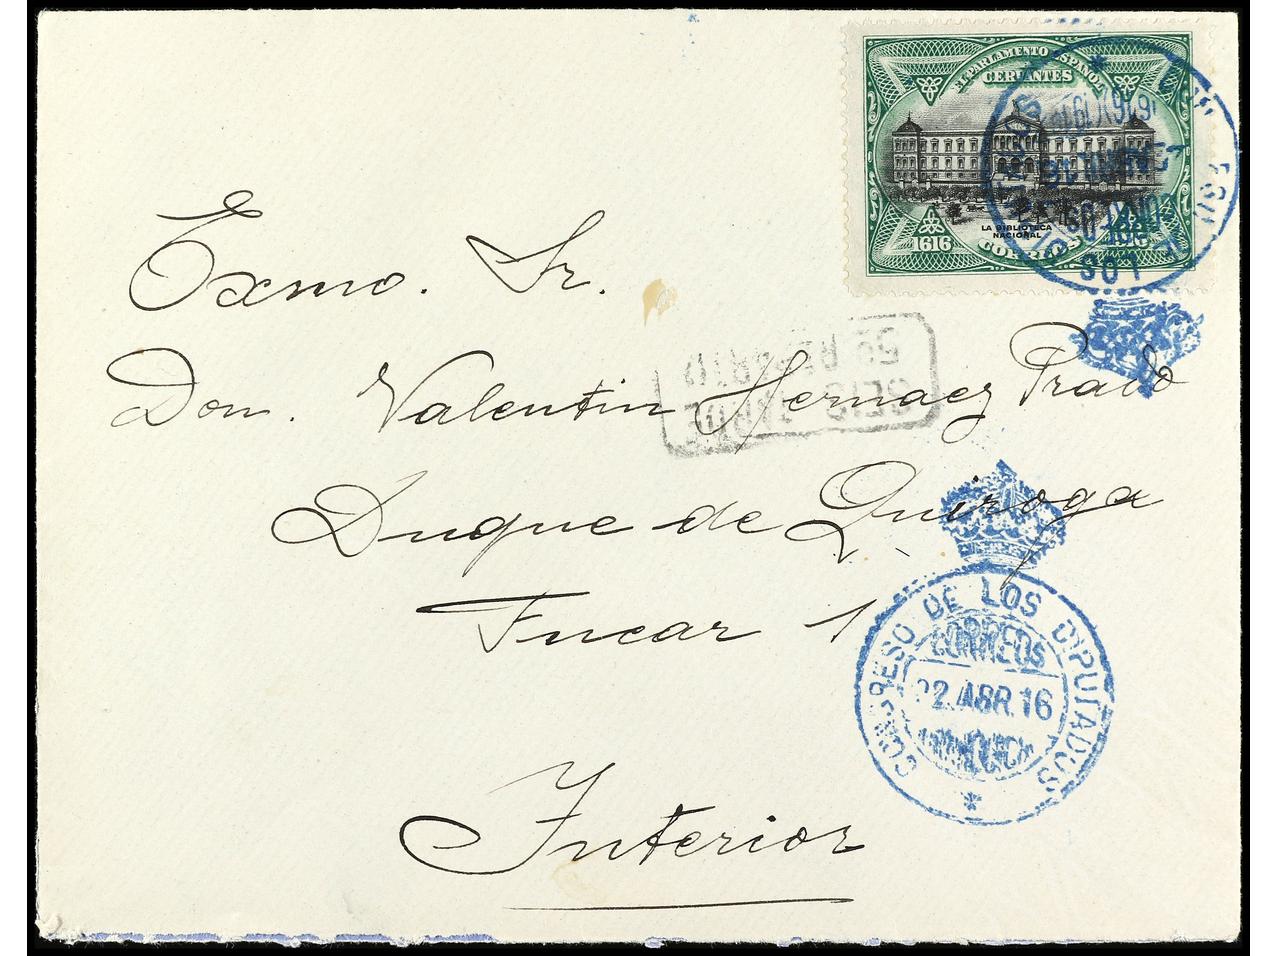 EL PARLAMENTO ESPAÑOL
CERVANTES
LA BIBLIOTECA
NACIONAL
1616 CORREOS 1916
Exmo. Sr.
5º REPARTO
SEIS TARDE
Don. Valentin Hernaez Prado
Duque de Quiroga
Fucar 1
Interior
CONGRESO DE LOS DIPUTADOS
CORREOS
22 ABR. 16
FRANQUICIA